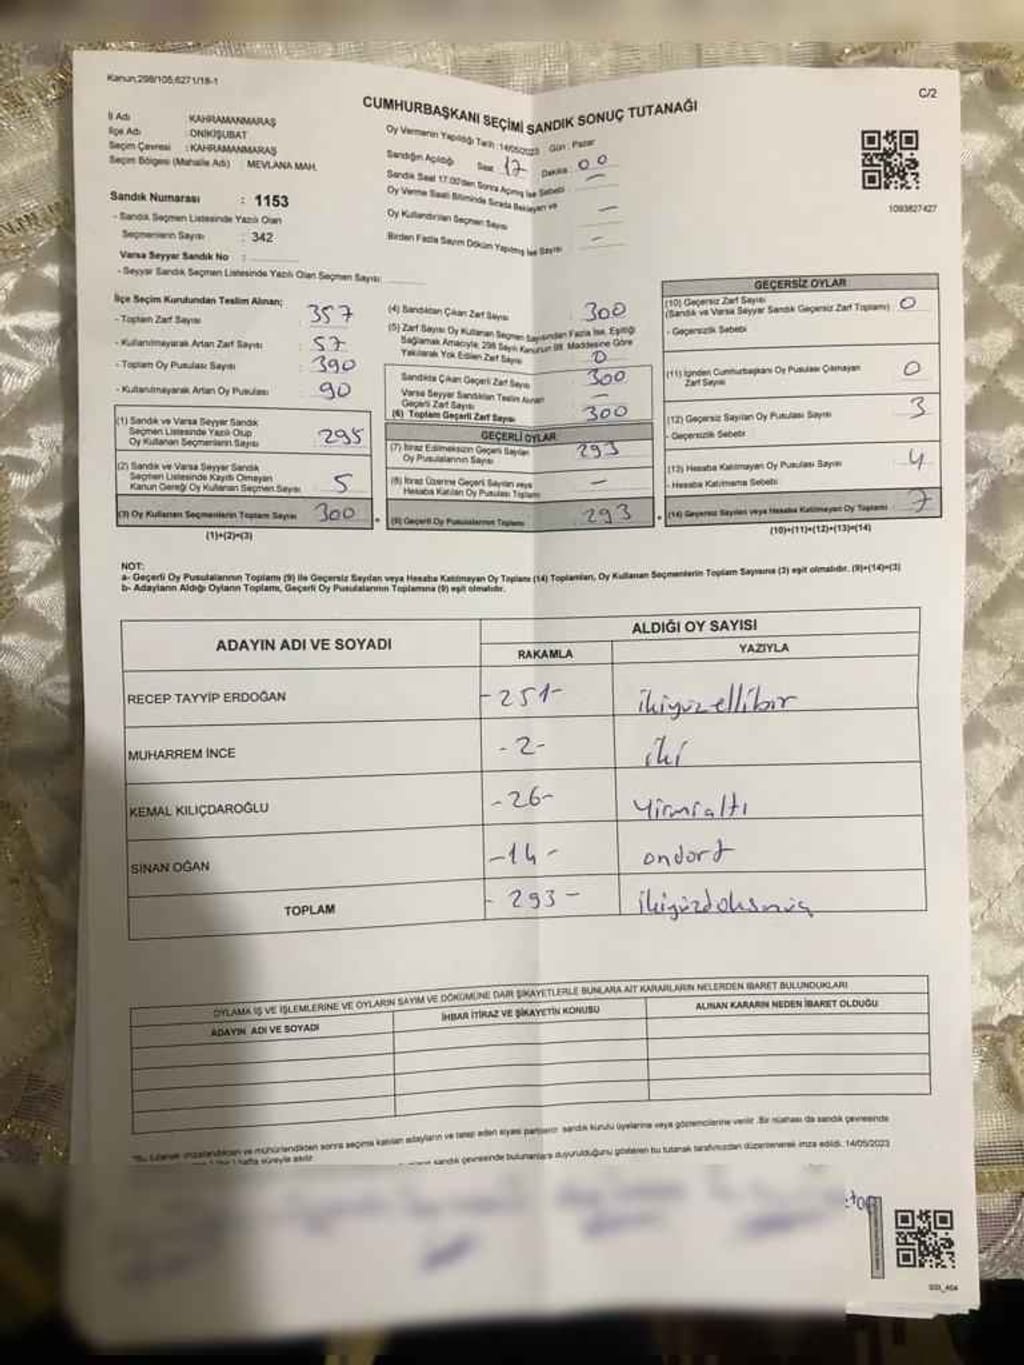 Kanun;298/105,6271/18-1
C/2
CUMHURBAŞKANI SEÇİMİ SANDIK SONUÇ TUTANAĞI
İl Adı : KAHRAMANMARAŞ
İlçe Adı : ONİKİŞUBAT
Seçim Çevresi : KAHRAMANMARAŞ
Seçim Bölgesi (Mahalle Adı) : MEVLANA MAH.
Sandık Numarası : 1153
- Sandık Seçmen Listesinde Yazılı Olan
Seçmenlerin Sayısı : 342
Varsa Seyyar Sandık No :
- Seyyar Sandık Seçmen Listesinde Yazılı Olan Seçmen Sayısı:
Oy Vermenin Yapıldığı Tarih : 14/05/2023 Gün : Pazar
Sandığın Açıldığı Saat 17 Dakika 00
Sandık Saat 17.00'den Sonra Açılmış İse Sebebi —
Oy Verme Saati Bitiminde Sırada Bekleyen ve
Oy Kullandırılan Seçmen Sayısı —
Birden Fazla Sayım Döküm Yapılmış İse Sayısı —
1093827427
İlçe Seçim Kurulundan Teslim Alınan;
- Toplam Zarf Sayısı : 357
- Kullanılmayarak Artan Zarf Sayısı : 57
- Toplam Oy Pusulası Sayısı : 390
- Kullanılmayarak Artan Oy Pusulası : 90
(1) Sandık ve Varsa Seyyar Sandık
Seçmen Listesinde Yazılı Olup
Oy Kullanan Seçmenlerin Sayısı : 295
(2) Sandık ve Varsa Seyyar Sandık
Seçmen Listesinde Kayıtlı Olmayan
Kanun Gereği Oy Kullanan Seçmen Sayısı : 5
(3) Oy Kullanan Seçmenlerin Toplam Sayısı : 300
(1)+(2)=(3)
(4) Sandıktan Çıkan Zarf Sayısı : 300
(5) Zarf Sayısı Oy Kullanan Seçmen Sayısından Fazla İse, Eşitliği
Sağlamak Amacıyla, 298 Sayılı Kanunun 98. Maddesine Göre
Yakılarak Yok Edilen Zarf Sayısı : 0
Sandıkta Çıkan Geçerli Zarf Sayısı : 300
Varsa Seyyar Sandıktan Teslim Alınan
Geçerli Zarf Sayısı : —
(6) Toplam Geçerli Zarf Sayısı : 300
GEÇERLİ OYLAR
(7) İtiraz Edilmeksizin Geçerli Sayılan
Oy Pusulalarının Sayısı : 293
(8) İtiraz Üzerine Geçerli Sayılan veya
Hesaba Katılan Oy Pusulası Toplamı : —
(9) Geçerli Oy Pusulalarının Toplamı : 293
GEÇERSİZ OYLAR
(10) Geçersiz Zarf Sayısı
(Sandık ve Varsa Seyyar Sandık Geçersiz Zarf Toplamı) : 0
- Geçersizlik Sebebi
(11) İçinden Cumhurbaşkanı Oy Pusulası Çıkmayan
Zarf Sayısı : 0
(12) Geçersiz Sayılan Oy Pusulası Sayısı : 3
- Geçersizlik Sebebi
(13) Hesaba Katılmayan Oy Pusulası Sayısı : 4
- Hesaba Katılmama Sebebi
(14) Geçersiz Sayılan veya Hesaba Katılmayan Oy Toplamı : 7
(10)+(11)+(12)+(13)=(14)
NOT:
a- Geçerli Oy Pusulalarının Toplamı (9) ile Geçersiz Sayılan veya Hesaba Katılmayan Oy Toplamı (14) Toplamları, Oy Kullanan Seçmenlerin Toplam Sayısına (3) eşit olmalıdır. (9)+(14)=(3)
b- Adayların Aldığı Oyların Toplamı, Geçerli Oy Pusulalarının Toplamına (9) eşit olmalıdır.
ADAYIN ADI VE SOYADI ALDIĞI OY SAYISI
RAKAMLA YAZIYLA
RECEP TAYYİP ERDOĞAN -251- ikiyüzellibir
MUHARREM İNCE -2- iki
KEMAL KILIÇDAROĞLU -26- Yirmialtı
SİNAN OĞAN -14- ondört
TOPLAM -293- ikiyüzdoksanüç
OYLAMA İŞ VE İŞLEMLERİNE VE OYLARIN SAYIM VE DÖKÜMÜNE DAİR ŞİKAYETLERLE BUNLARA AİT KARARLARIN NELERDEN İBARET BULUNDUKLARI
ADAYIN ADI VE SOYADI İHBAR İTİRAZ VE ŞİKAYETİN KONUSU ALINAN KARARIN NEDEN İBARET OLDUĞU
*Bu tutanak imzalandıktan ve mühürlendikten sonra seçime katılan adayların ve talep eden siyasi partilerin sandık kurulu üyelerine veya gözlemcilerine verilir. Bir nüshası da sandık çevresinde
hafta süreyle asılır
sandık çevresinde bulunanlara duyurulduğunu gösteren bu tutanak tarafımızdan düzenlenerek imza edildi. 14/05/2023